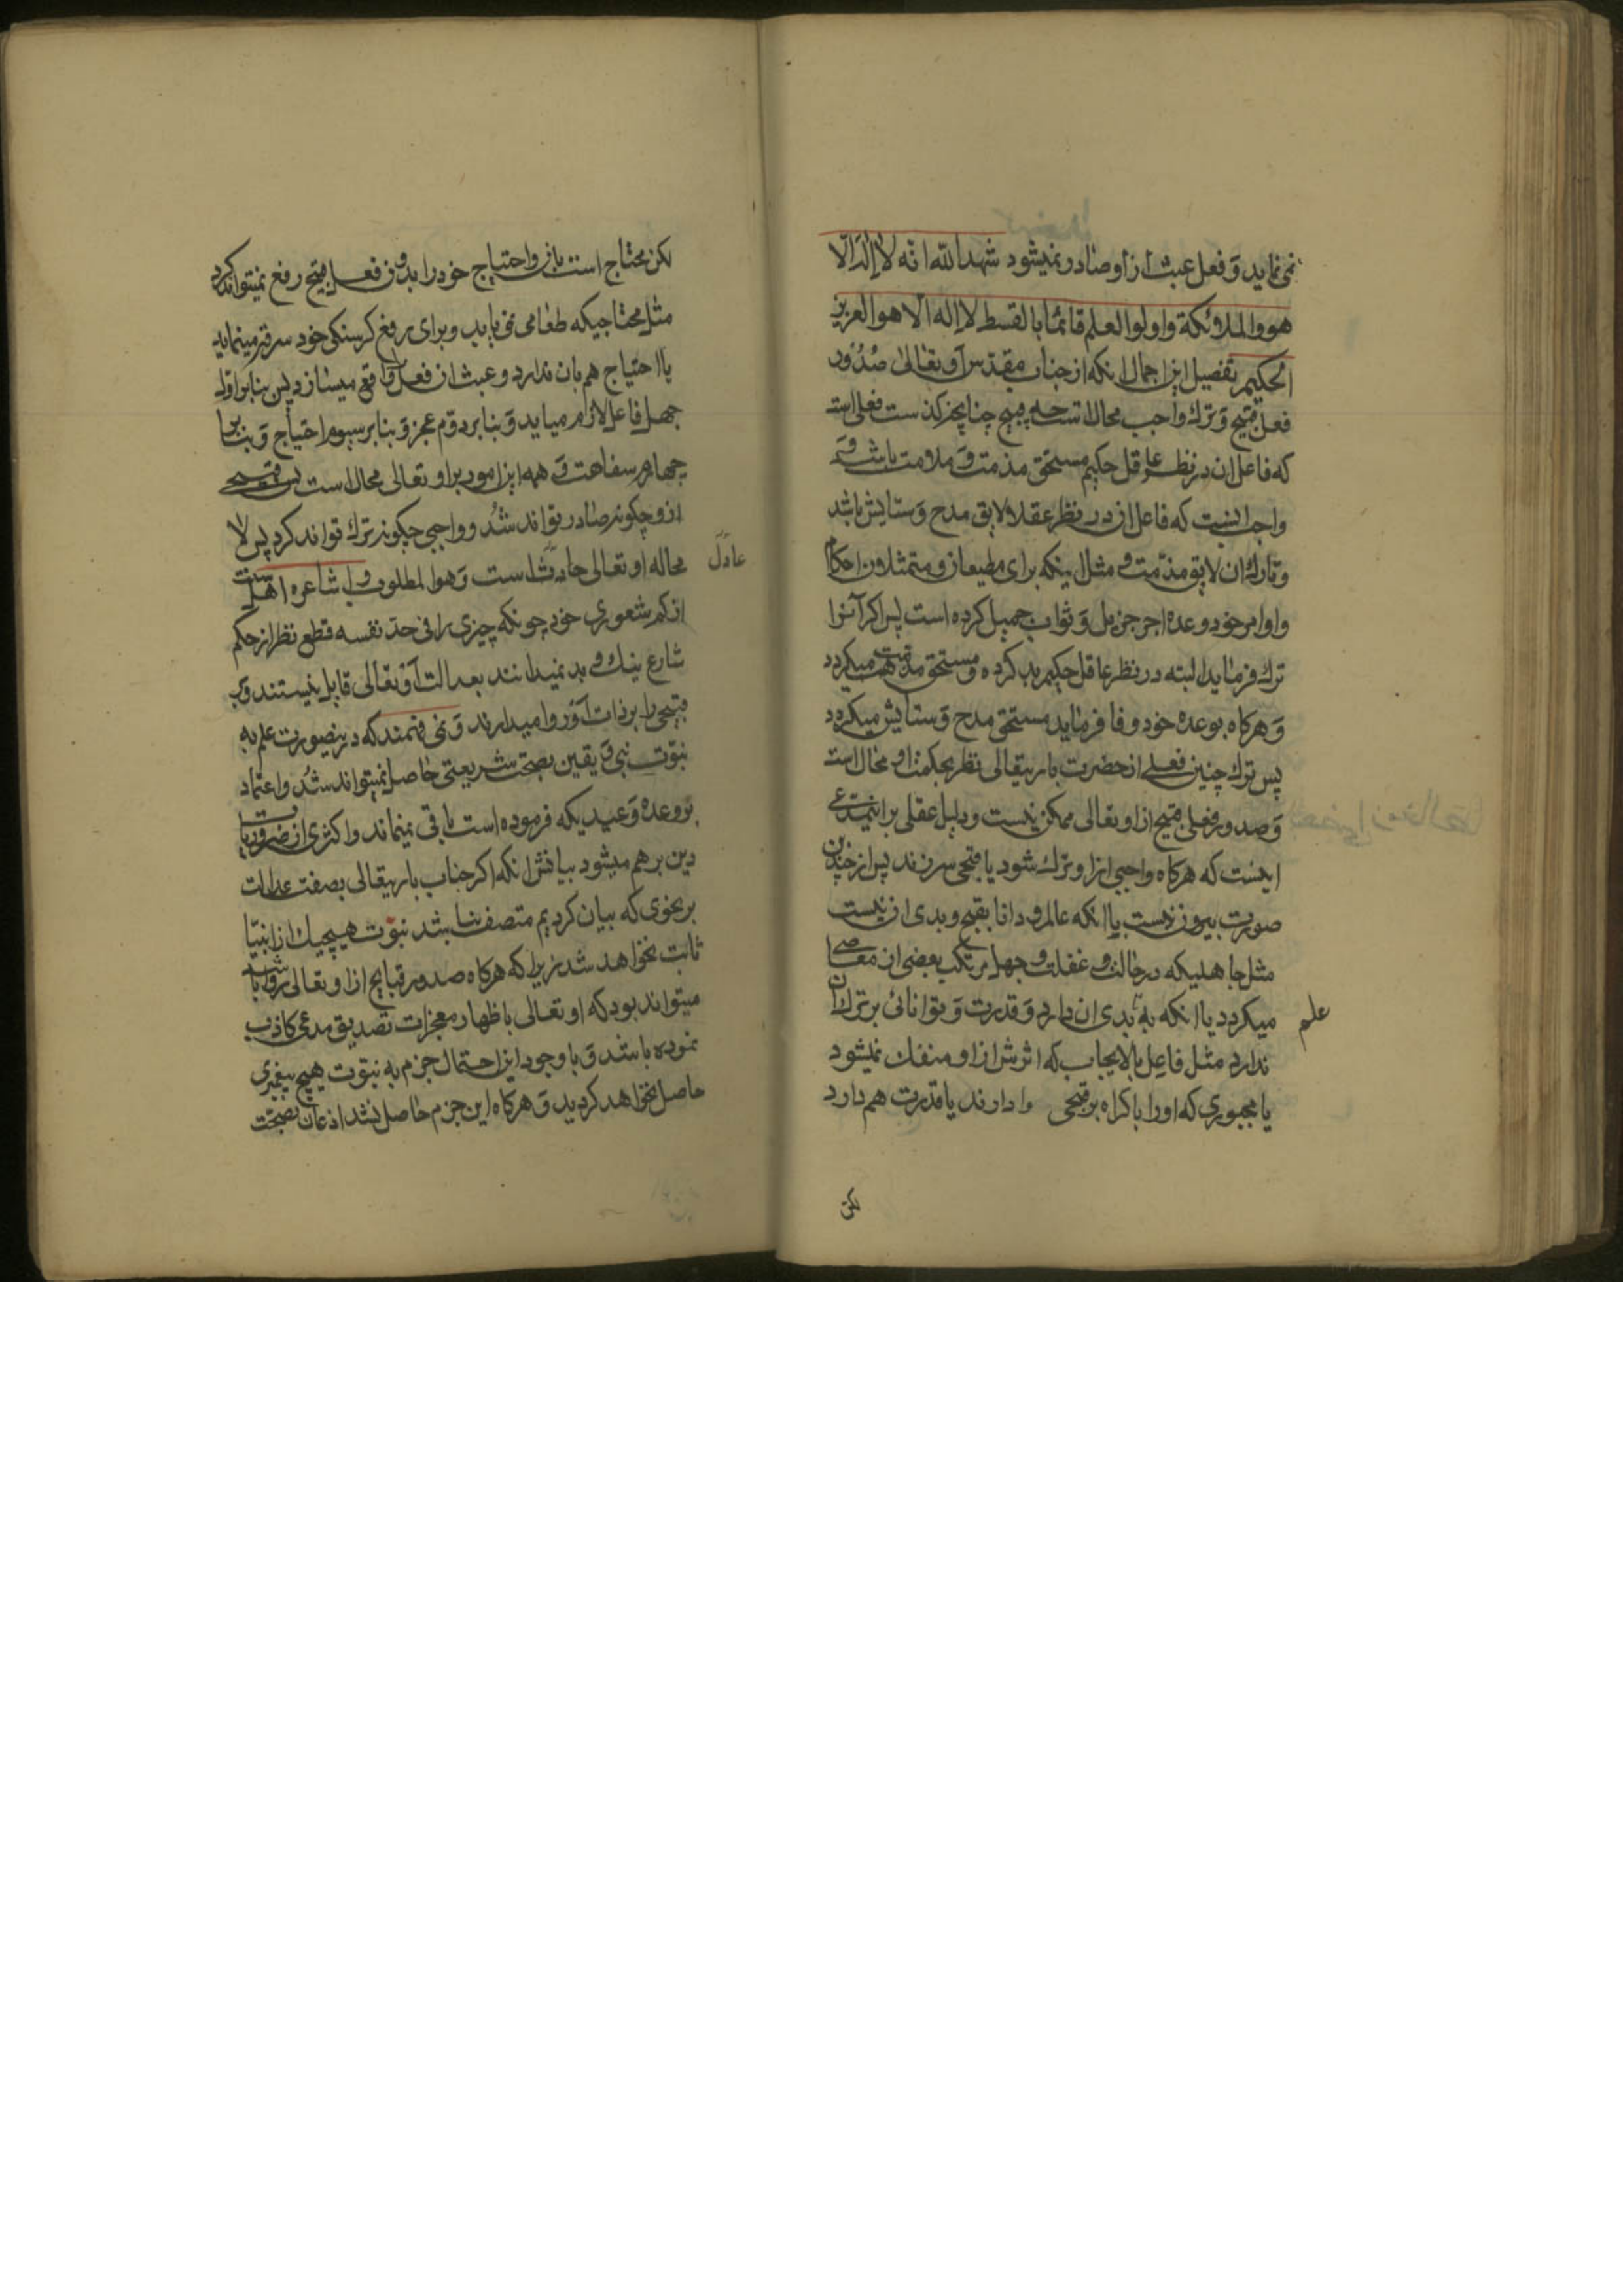 نمی نماید و فعل عبث از او صادر نمیشود شهد الله انه لا اله الا
هو والملائکة واولوا العلم قائما بالقسط لا اله الا هو العزیز
الحکیم تفصیل این اجمال انکه از جناب مقدس او تعالی صدور
فعل قبیح و ترک واجب محالست چه قبیح چنا فعلی است
که فاعل ان در نظر عاقل حکیم مستحق مذمت و ملامت باشد و
واجب انست که فاعل ان در نظر عقلا لایق مدح و ستایش باشد
و تارک ان لایق مذمت مثل اینکه برای مطیعان و متمثلان احکام
و اوامر خود وعده اجر جزیل و ثواب جمیل کرده است پس اکر آنرا
ترک فرماید البته در نظر عاقل حکیم بد کرده و مستحق مذمت میکردد
و هرکاه بوعده خود وفا فرماید مستحق مدح و ستایش میکردد
پس ترک چنین فعلی از حضرت باریتعالی نظر بحکمت او محال است
و صدور فعل قبیح از او تعالی ممکن نیست و دلیل عقلی بر این مدعی
اینست که هرکاه واجبی از او ترک شود یا قبحی سر زند پس از چندین
صورت بیرون نیست یا انکه عالم و دانا بقبح و بدی ان نیست
مثل جاهلیکه در حالت غفلت و جهل مرتکب بعضی از معاصی
میکردد یا انکه علم به بدی ان دارد و قدرت و توانائی بر ترک ان
ندارد مثل فاعل بالایجاب که اثرش از او منفک نمیشود
یا مجبوری که او را باکراه بر قبحی وا دارند یا قدرت هم دارد
لکن
لکن محتاج است بان و احتیاج خود را بدون فعل قبیح رفع نمیتواند کرد
مثل محتاجیکه طعامی نمی یابد و برای رفع کرسنکی خود سرقه مینماید
یا احتیاج هم بان ندارد و عبث ان فعل را واقع میسازد پس بنابر اول
جهل فاعل لازم میاید و بنابر دوم عجز و بنابر سیوم احتیاج و بنابر
چهارم سفاهت و همه این امور بر او تعالی محال است پس قبیحی
از و چکونه صادر تواند شد و واجبی چکونه ترک تواند کرد پس لا
محاله او تعالی عادل است و هو المطلوب و اشاعره اهل سنت
از کم شعوری خود چونکه چیزی را فی حد نفسه قطع نظر از حکم
شارع نیک و بد نمیدانند بعدالت او تعالی قایل نیستند و هر
قبیحی را بر ذات او روا میدارند و نمی فهمند که درینصورت علم به
نبوت نبی و یقین بصحت شریعتی حاصل نمیتواند شد و اعتماد
بر وعده و وعیدیکه فرموده است باقی نمیماند و اکثری از ضروریات
دین برهم میشود بیانش انکه اکر جناب باریتعالی بصفت عدالت
بر نحوی که بیان کردیم متصف نباشد نبوت هیچیک از انبیا
ثابت نخواهد شد زیرا که هرکاه صدور قبایح از او تعالی روا باشد
میتواند بود که او تعالی باظهار معجزات تصدیق مدعی کاذب
نموده باشد و با وجود این احتمال جزم به نبوت هیچ پیغمبری
حاصل نخواهد کردید و هرکاه این جزم حاصل نشد اذعان بصحت